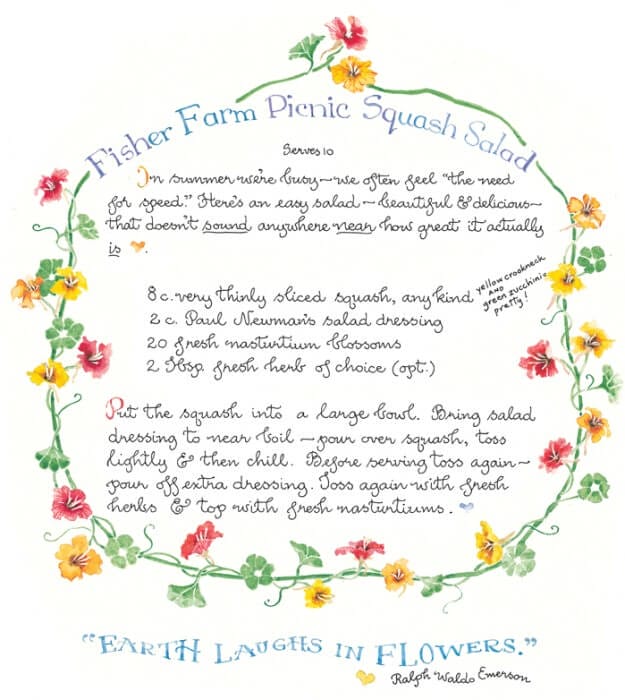 Fisher Farm Picnic Squash Salad
Serves 10
In summer we're busy—we often feel "the need
for speed." Here's an easy salad—beautiful & delicious—
that doesn't sound anywhere near how great it actually
is.
8 c. very thinly sliced squash, any kind
yellow crookneck
AND
green zucchini =
pretty!
2 c. Paul Newman's salad dressing
20 fresh nasturtium blossoms
2 tbsp. fresh herb of choice (opt.)
Put the squash into a large bowl. Bring salad
dressing to near boil—pour over squash, toss
lightly & then chill. Before serving toss again—
pour off extra dressing. Toss again with fresh
herbs & top with fresh nasturtiums.
"EARTH LAUGHS IN FLOWERS."
Ralph Waldo Emerson